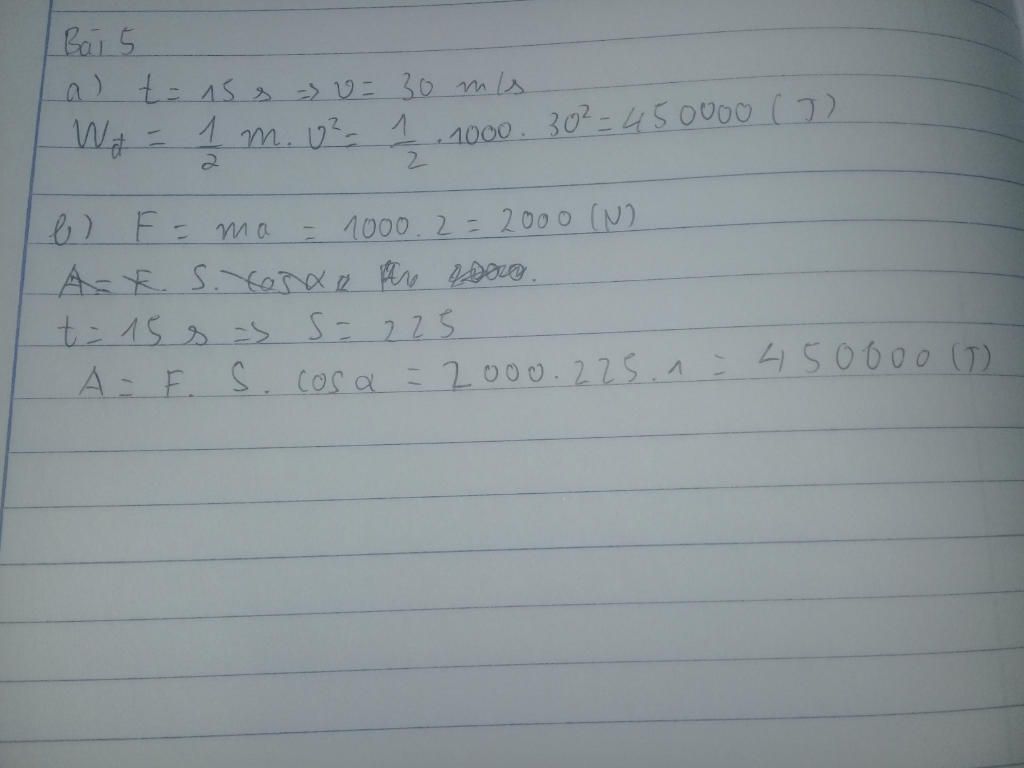 Bài 5
a) t = 15 s => v = 30 m/s
Wđ = 1/2 m. v² = 1/2 . 1000. 30² = 450000 (J)
b) F = ma = 1000. 2 = 2000 (N)
A = F. S. cosα
t = 15 s => S = 225
A = F. S. cosα = 2000. 225. 1 = 450000 (J)